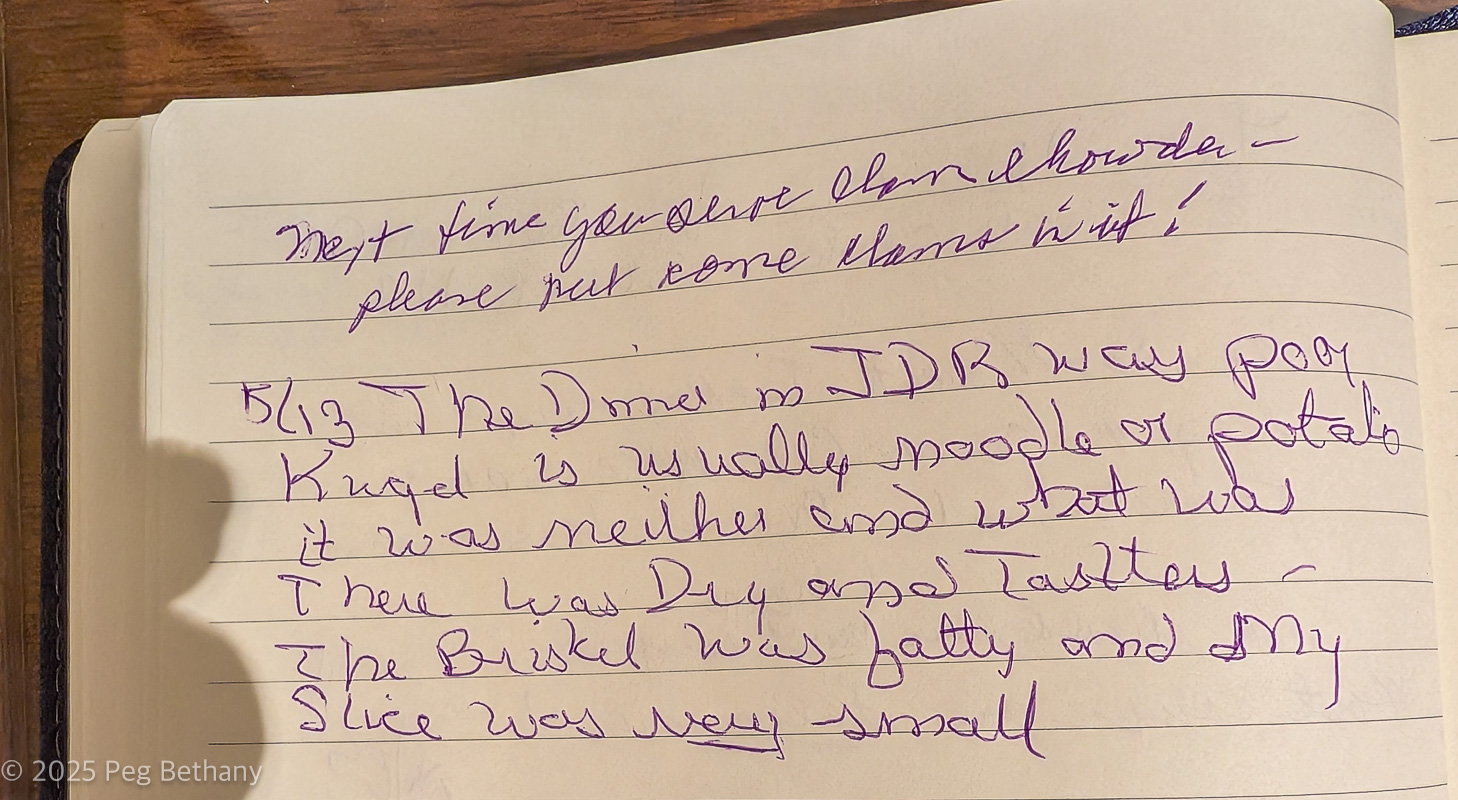 Next time you serve clam chowder –
please put some clams in it!
5/13 The Dinner in JDR was poor
Kugel is usually noodle or potato
it was neither and what was
There was Dry and Tastless –
The Brisket was fatty and My
Slice was very small
© 2025 Peg Bethany